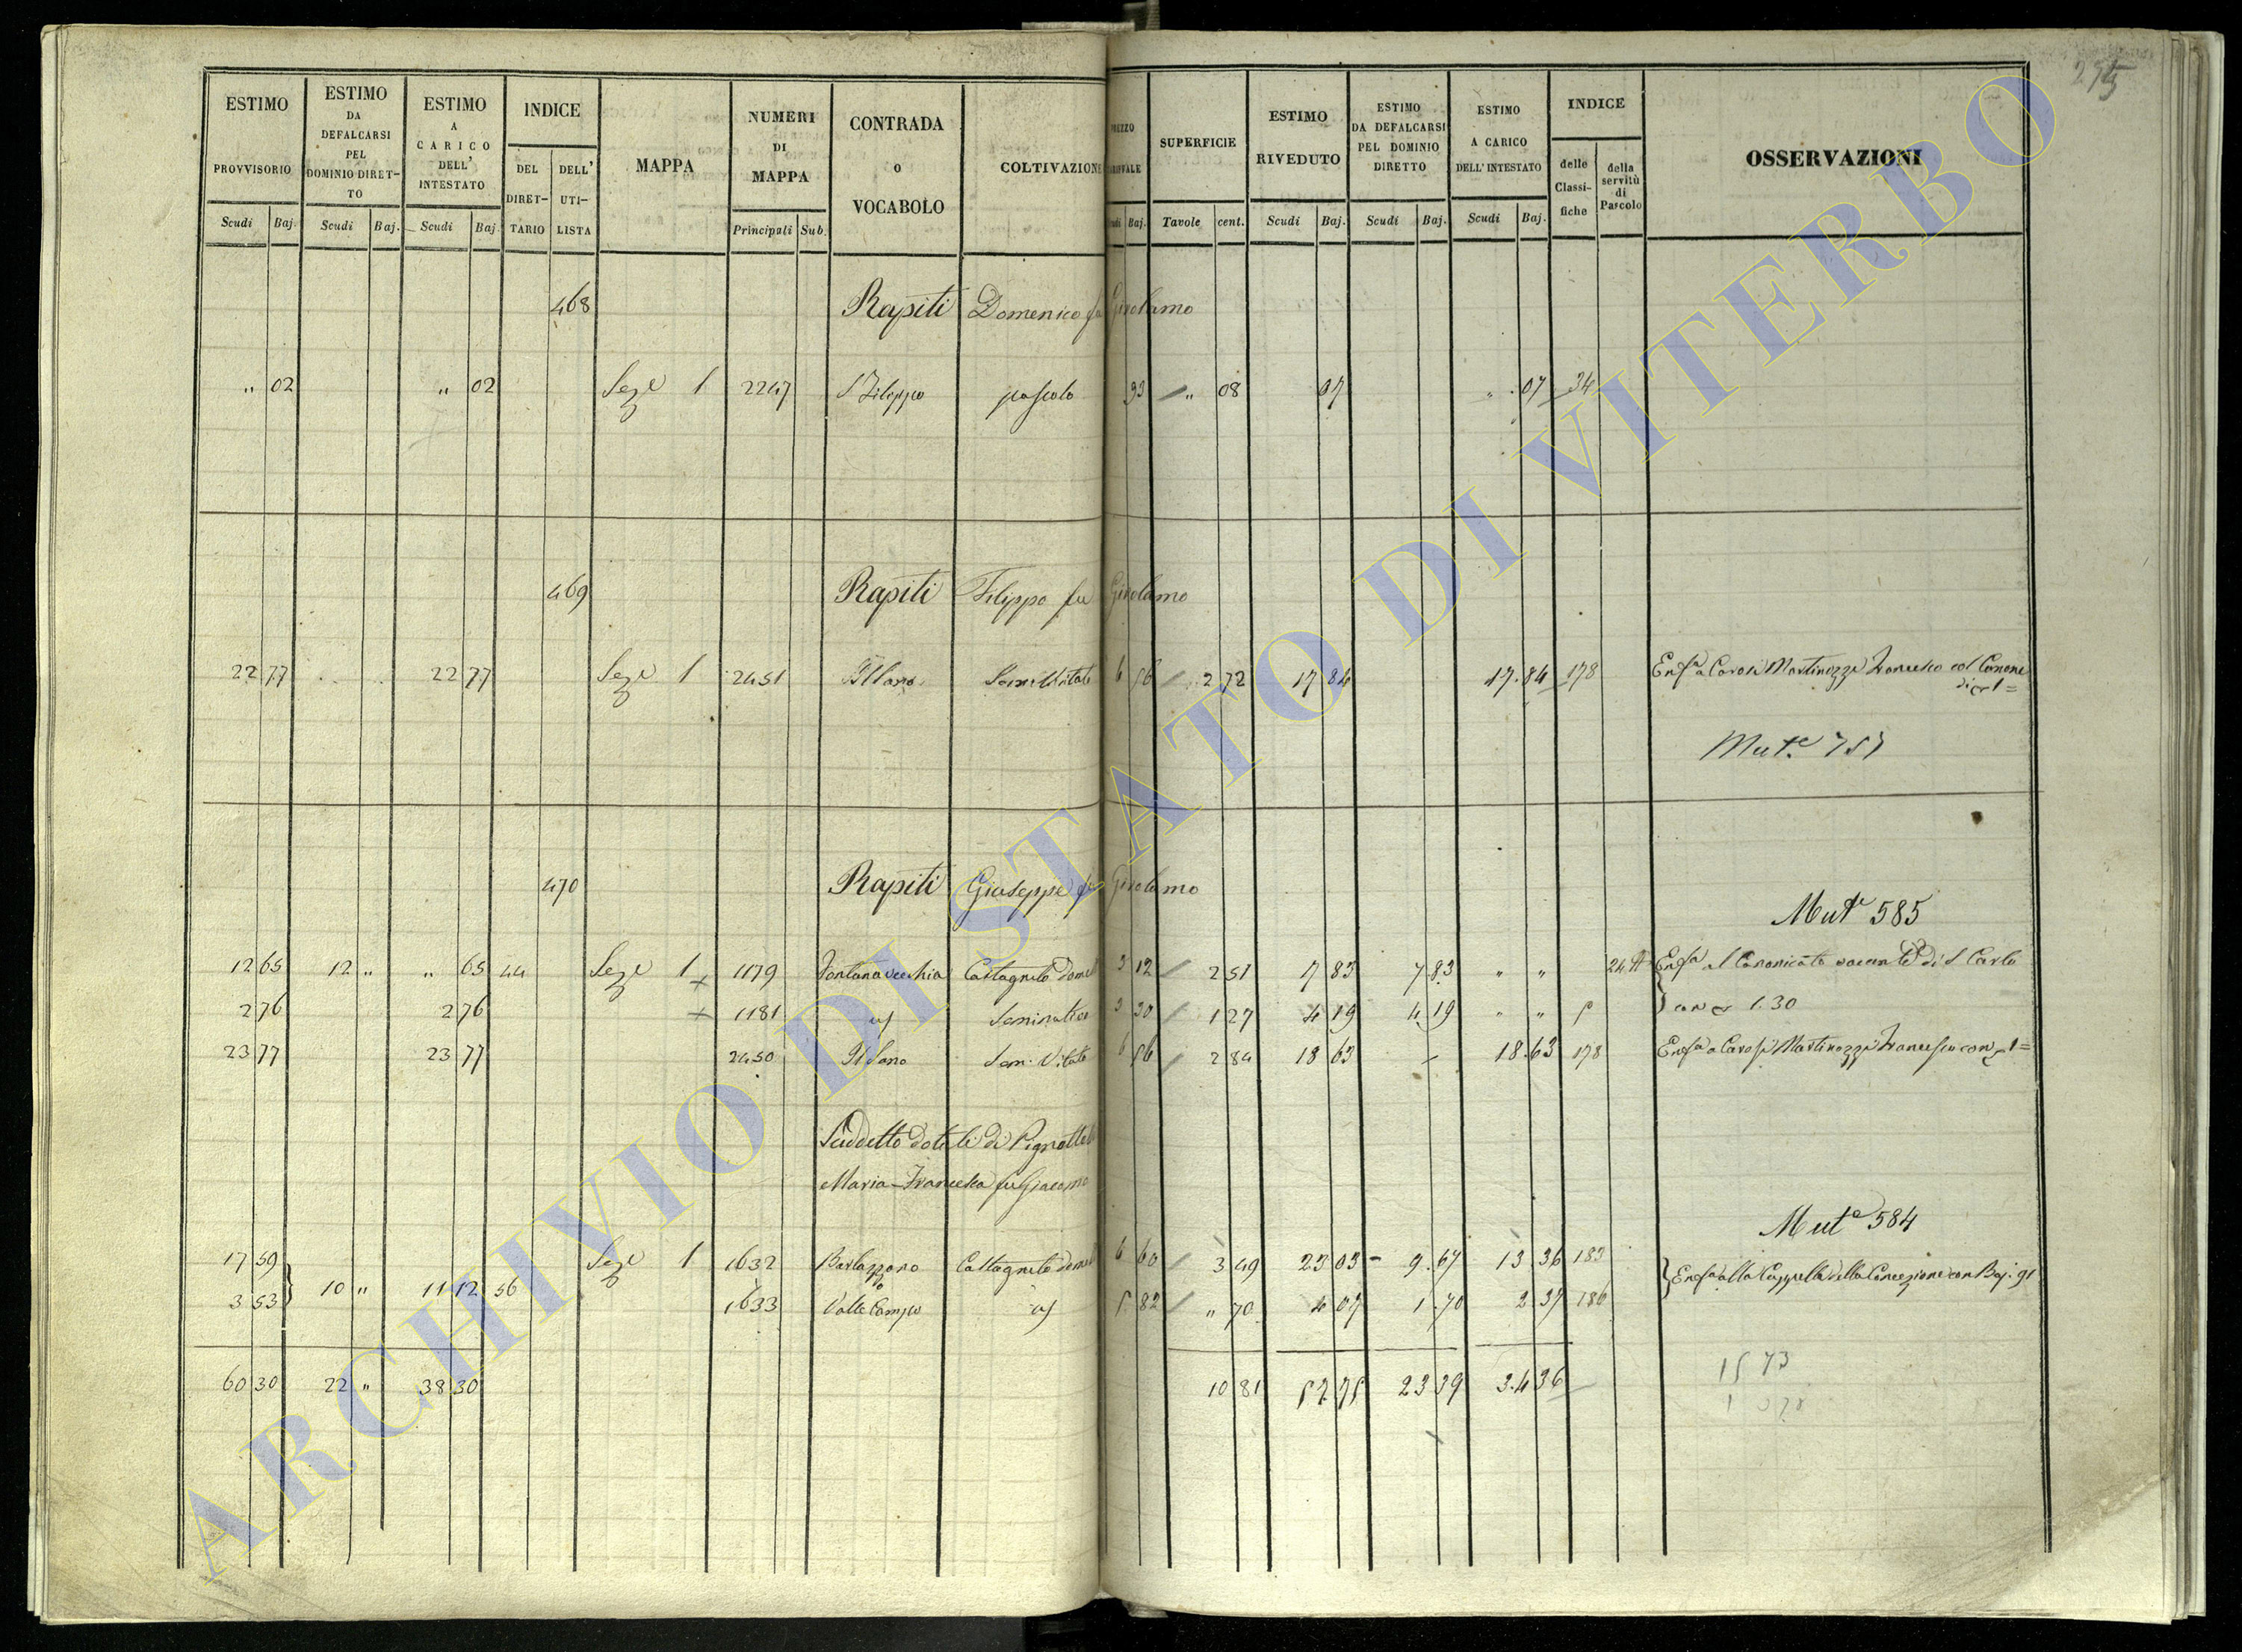 295
ESTIMO PROVVISORIO Scudi Baj.
ESTIMO DA DEFALCARSI PEL DOMINIO DIRETTO Scudi Baj.
ESTIMO A CARICO DELL' INTESTATO Scudi Baj.
INDICE DEL DIRETTARIO DELL' UTILISTA
MAPPA
NUMERI DI MAPPA Principali Sub.
CONTRADA O VOCABOLO
COLTIVAZIONE
SUPERFICIE Tavole cent.
ESTIMO RIVEDUTO Scudi Baj.
ESTIMO DA DEFALCARSI PEL DOMINIO DIRETTO Scudi Baj.
ESTIMO A CARICO DELL' INTESTATO Scudi Baj.
INDICE delle Classifiche della servitù di Pascolo
OSSERVAZIONI
468 Rapiti Domenico fu Girolamo
" 02 " 02 Seze 1 2247 S Filippo pascolo 93 " 08 07 " 07 34
469 Rapiti Filippo fu Girolamo
22 77 22 77 Seze 1 2451 6 56 2 72 17 84 17.84 178 Enfa a Carosi Martinozzi Francesco col Canone
di 1=
Mut.e 757
470 Rapiti Giuseppe fu Girolamo
Mute 585
12 65 12 " " 65 44 Seze 1 1179 Fontanavecchia Castagneto domes 3 12 2 51 7 83 7.83 " " 24 Enfa al Canonicato vacante di S Carlo
2 76 2 76 1181 Seminativo 3 30 1 27 4 19 4 19 " " 5 1.30
23 77 23 77 2450 Sem. Vitato 6 56 2 84 18 63 18.63 178 Enfa a Carosi Martinozzi Francesco con 1=
Suddetto dotali di Pignattelli
Maria Francesca fu Giacomo
Mute 584
17 59 Seze 1 1632 Castagneto domes 6 60 3 49 23 03 9.67 13 36 183
3 53 10 " 11 12 56 1633 Valle Campo 5 82 " 70 4 07 1.70 2 37 186 Enfa alla Cappella della Concezione con Baj. 91
60 30 22 " 38 30 10 81 57 75 23 39 34 36
15 73
ARCHIVIO DI STATO DI VITERBO